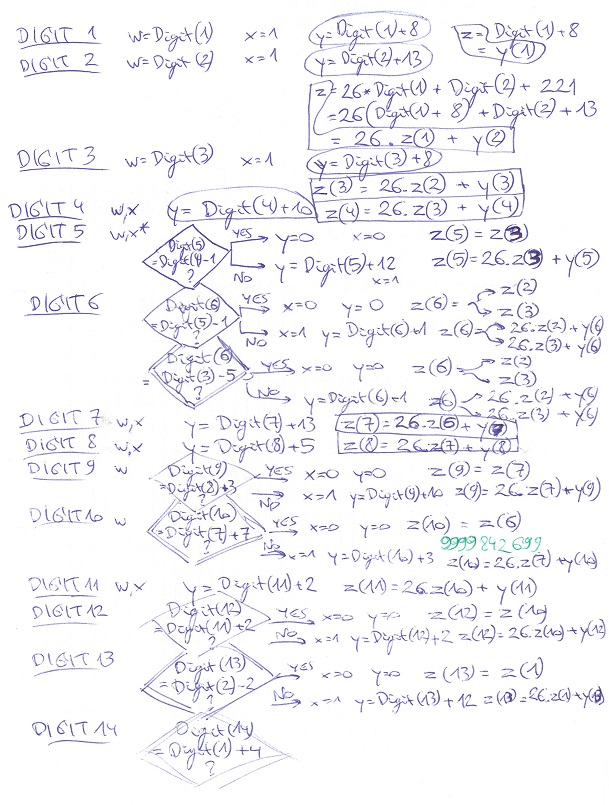 DIGIT 1 w=Digit(1) x=1 y=Digit(1)+8 z=Digit(1)+8
= y(1)
DIGIT 2 w=Digit(2) x=1 y=Digit(2)+13
z=26*Digit(1) + Digit(2) + 221
=26(Digit(1)+8) + Digit(2)+13
= 26.z(1) + y(2)
DIGIT 3 w=Digit(3) x=1 y=Digit(3)+8
z(3) = 26.z(2) + y(3)
DIGIT 4 w,x y= Digit(4)+10 z(4) = 26.z(3) + y(4)
DIGIT 5 w,x* Digit(5) =Digit(4)-1 ? YES y=0 x=0 z(5)= z(3)
NO y=Digit(5)+12 x=1 z(5)=26.z(3) + y(5)
DIGIT 6 Digit(6) =Digit(5)-1 ? YES x=0 y=0 z(6)= z(2) z(3)
NO x=1 y=Digit(6)+1 z(6)= 26.z(2)+y(6) 26.z(3)+y(6)
= Digit(6) Digit(3)-5 ? YES x=0 y=0 z(6)= z(2) z(3)
NO y=Digit(6)+1 z(6) 26.z(2)+y(6) 26.z(3)+y(6)
DIGIT 7 w,x y= Digit(7)+13 z(7)=26.z(6)+y(7)
DIGIT 8 w,x y=Digit(8)+5 z(8)= 26.z(7)+y(8)
DIGIT 9 w Digit(9) =Digit(8)+3 ? YES x=0 y=0 z(9)= z(7)
NO x=1 y=Digit(9)+10 z(9)=26.z(7)+y(9)
DIGIT 10 w Digit(10) =Digit(7)+7 ? YES x=0 y=0 z(10) = z(6)
9999842699
NO x=1 y=Digit(10)+3 z(10)=26.z(7)+y(10)
DIGIT 11 w,x y= Digit(11)+2 z(11)=26.z(10)+y(11)
DIGIT 12 Digit(12) =Digit(11)+2 ? YES x=0 y=0 z(12)= z(10)
NO x=1 y=Digit(12)+2 z(12)=26.z(10)+y(12)
DIGIT 13 Digit(13) =Digit(2)-2 ? YES x=0 y=0 z(13)= z(1)
NO x=1 y=Digit(13)+12 z(13)=26.z(1)+y(13)
DIGIT 14 Digit(14) = Digit(1)+4 ?